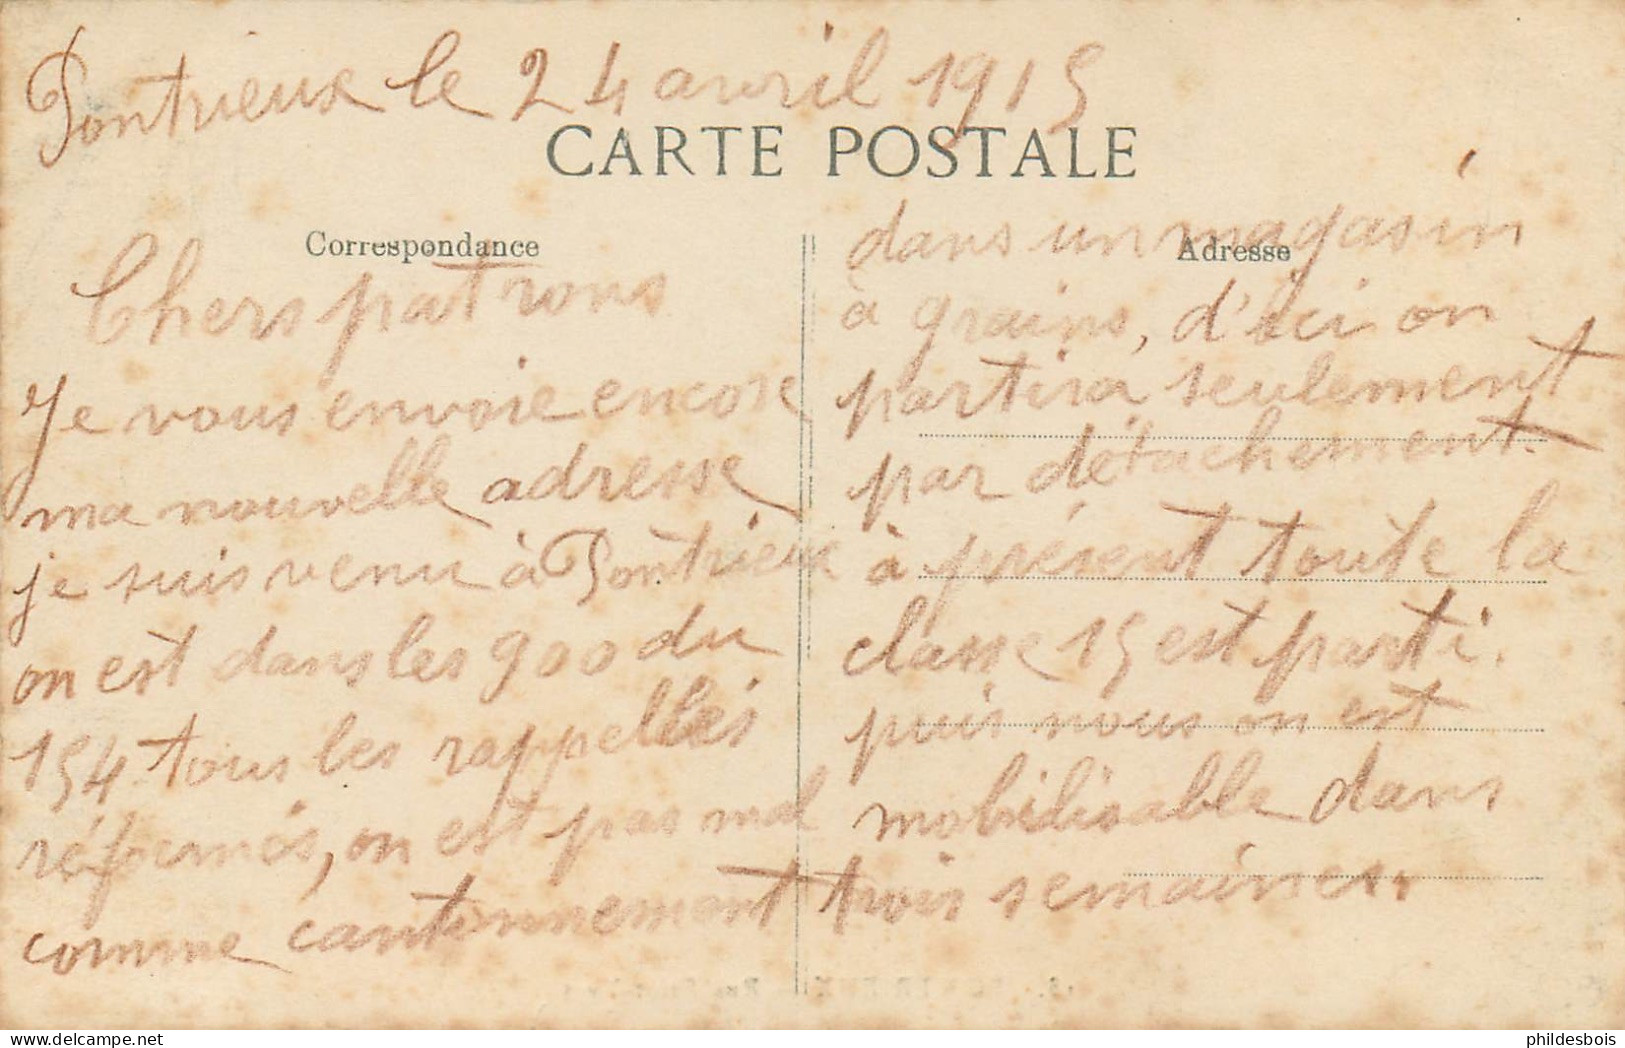 Pontrieux le 24 avril 1915
CARTE POSTALE
Correspondance
Chers patrons
Je vous envoie encore
ma nouvelle adresse
je suis venu à Pontrieux
on est dans les 900 du
154 tous les rappellés
réformés, on est pas mal
comme cantonnement
Adresse
dans un magasin
à grains, d'ici on
partira seulement
par détachement.
à présent toute la
classe 15 est parti.
puis nous on est
mobilisable dans
trois semaines.
phildesbois